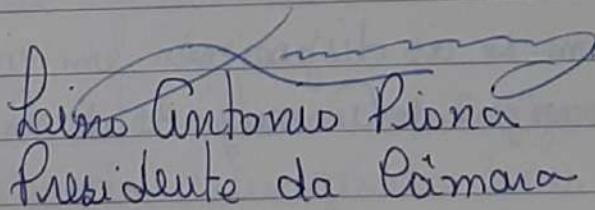 Laino Antonio Piona
Presidente da Câmara